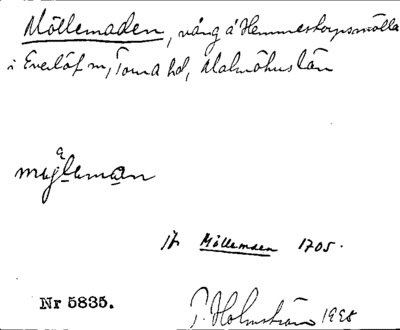 Möllemaden, vång å Hemmestorpsmölla
i Everlöf m, Torna hd, Malmöhus län
Jfr Möllemaen 1705.
Nr 5835.
P. Holmström 1928